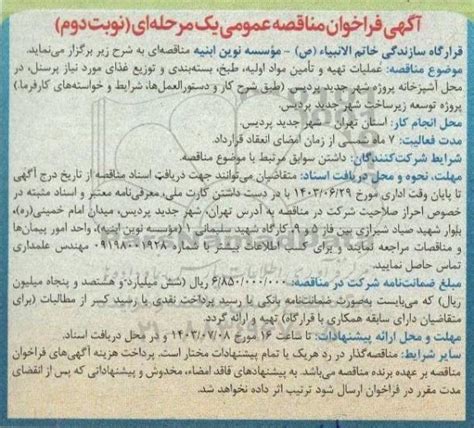 آگهی فراخوان مناقصه عمومی یک مرحله‌ای (نوبت دوم)
قرارگاه سازندگی خاتم الانبیاء (ص) - مؤسسه نوین ابنیه مناقصه‌ای به شرح زیر برگزار می‌نماید.
موضوع مناقصه: عملیات تهیه و تأمین مواد اولیه، طبخ، بسته‌بندی و توزیع غذای مورد نیاز پرسنل، در
محل آشپزخانه پروژه شهر جدید پردیس. (طبق شرح کار و دستورالعمل‌ها، شرایط و خواسته‌های کارفرما.)
پروژه توسعه زیرساخت شهر جدید پردیس.
محل انجام کار: استان تهران - شهر جدید پردیس.
مدت فعالیت: ۷ ماه شمسی از زمان امضای انعقاد قرارداد.
شرایط شرکت‌کنندگان: داشتن سوابق مرتبط با موضوع مناقصه.
مهلت، نحوه و محل دریافت اسناد: متقاضیان می‌توانند جهت دریافت اسناد مناقصه از تاریخ درج آگهی
تا پایان وقت اداری مورخ ۱۴۰۳/۰۶/۲۹ با در دست داشتن کارت ملی، معرفی‌نامه معتبر و اسناد مثبته در
خصوص احراز صلاحیت شرکت در مناقصه به آدرس تهران، شهر جدید پردیس، میدان امام خمینی(ره)،
بلوار شهید صیاد شیرازی بین فاز ۸ و ۹، کارگاه شهید سلیمانی ۱ (مؤسسه نوین ابنیه)، واحد امور پیمان‌ها
و مناقصات مراجعه نمایند و برای کسب اطلاعات بیشتر با شماره ۰۹۱۹۸۰۰۱۹۲۸ مهندس علمداری
تماس حاصل نمایید.
مبلغ ضمانت‌نامه شرکت در مناقصه: ۶/۸۵۰/۰۰۰/۰۰۰ ریال (شش میلیارد و هشتصد و پنجاه میلیون
ریال) که می‌بایست به‌صورت ضمانت‌نامه بانکی یا رسید پرداخت نقدی یا رسید کسر از مطالبات (برای
متقاضیان دارای سابقه همکاری با قرارگاه) تهیه و ارائه گردد.
مهلت و محل ارائه پیشنهادات: تا ساعت ۱۶ مورخ ۱۴۰۳/۰۷/۰۸ و در محل دریافت اسناد.
سایر شرایط: مناقصه‌گذار در رد هریک یا تمام پیشنهادات مختار است. پرداخت هزینه آگهی‌های فراخوان
مناقصه بر عهده برنده مناقصه می‌باشد. به پیشنهادهای فاقد امضاء، مخدوش و پیشنهاداتی که پس از انقضای
مدت مقرر در فراخوان ارسال شود ترتیب اثر داده نخواهد شد.